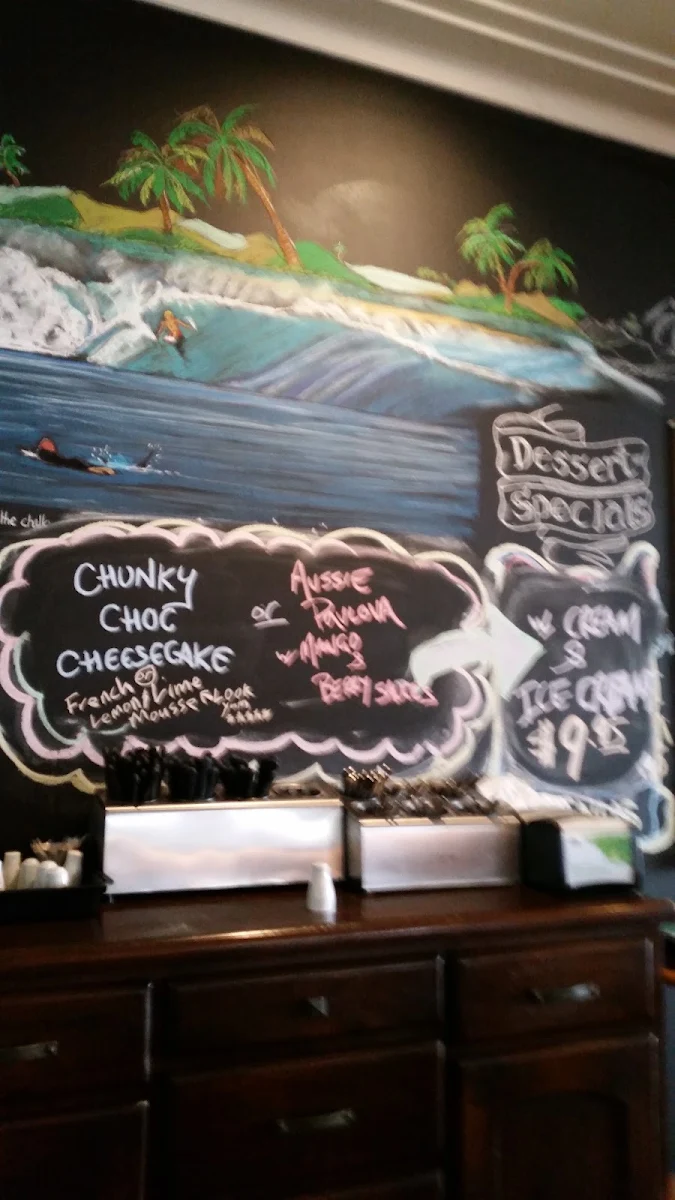 Dessert
Specials
the chalk
CHUNKY
CHOC
CHEESECAKE
or
French
Lemon/Lime
Mousse
AUSSIE
PAVLOVA
w MANGO
&
BERRY SAUCES
w CREAM
&
ICE CREAM
$9.95